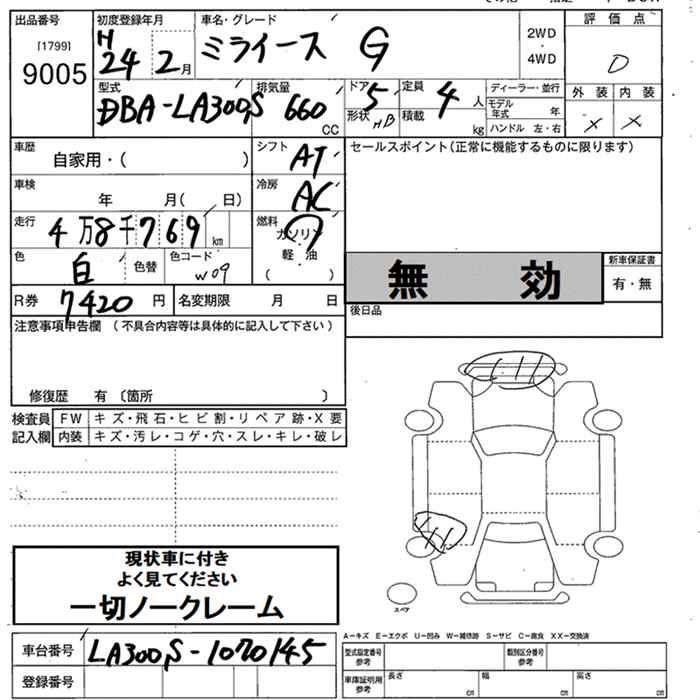 出品番号
[1799]
9005
初度登録年月
H
24 2月
車名・グレード
ミライース G
2WD
・
4WD
評価点
D
外装 内装
× ×
型式
DBA-LA300S
排気量
660
CC
ドア
5
形状
HB
定員
4人
積載
kg
ディーラー・並行
モデル年式 年
ハンドル 左・右
車歴
自家用・( )
シフト
AT
車検
年 月( 日)
冷房
AC
走行
4万8千769km
燃料
ガソリン
軽・油
( )
色
白
色替
色コード
W09
R券
7420円
名変期限 月 日
セールスポイント(正常に機能するものに限ります)
無 効
新車保証書
有・無
後日品
注意事項申告欄 (不具合内容等は具体的に記入して下さい)
修復歴 有 〔箇所 〕
検査員
記入欄
FW キズ・飛石・ヒビ割・リペア跡・X要
内装 キズ・汚レ・コゲ・穴・スレ・キレ・破レ
現状車に付き
よく見てください
一切ノークレーム
スペア
A-キズ E-エクボ U-凹み W-補修跡 S-サビ C-腐食 XX-交換済
車台番号
LA300S-1070145
登録番号
型式指定番号
参考
類別区分番号
参考
車庫証明用
参考
長さ cm
幅 cm
高さ cm